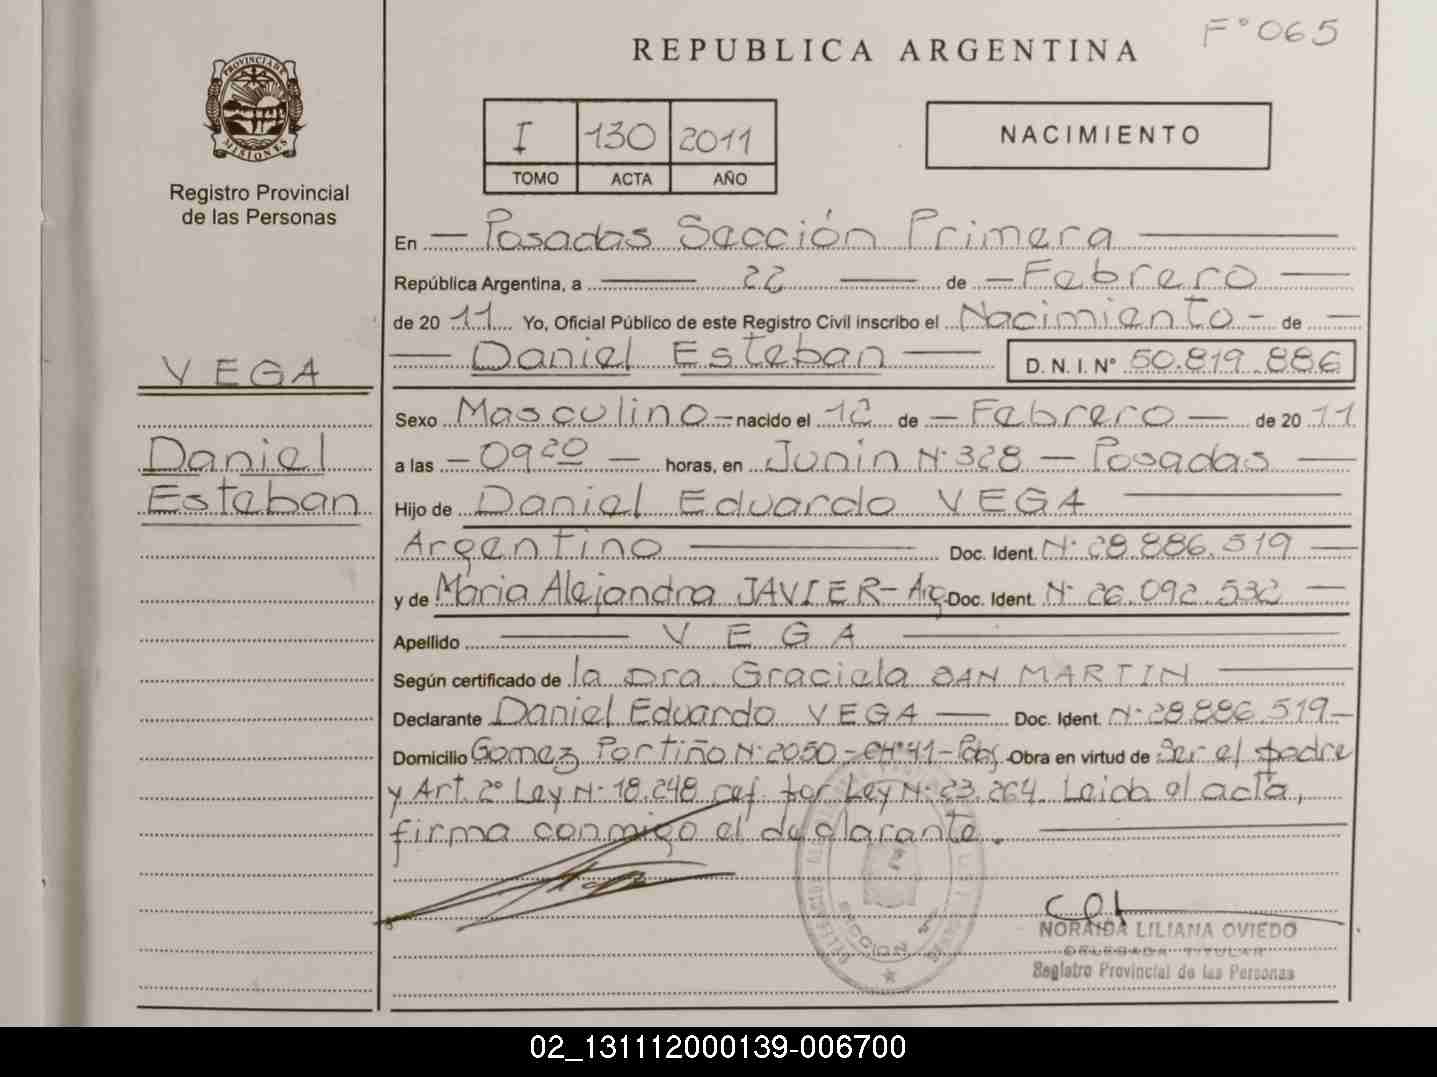 F° 065
REPUBLICA ARGENTINA
PROVINCIA DE
MISIONES
Registro Provincial
de las Personas
I 130 2011
TOMO ACTA AÑO
NACIMIENTO
En Posadas Sección Primera
República Argentina, a 22 de Febrero
de 20 11 Yo, Oficial Público de este Registro Civil inscribo el Nacimiento de
Daniel Esteban D. N. I. N° 50.819.886
VEGA
Daniel
Esteban
Sexo Masculino nacido el 12 de Febrero de 20 11
a las 09 20 horas, en Junín N° 328 - Posadas
Hijo de Daniel Eduardo VEGA
Argentino Doc. Ident. N° 28.886.519
y de Maria Alejandra JAVIER - Arg Doc. Ident. N° 26.092.532
Apellido VEGA
Según certificado de la Dra. Graciela SAN MARTIN
Declarante Daniel Eduardo VEGA Doc. Ident. N° 28.886.519
Domicilio Gomez Portiño N° 2050 - CH° 41 - Pdas Obra en virtud de Ser el padre
y Art. 2° Ley N° 18.248 ref. por Ley N° 23.264. Leida el acta,
firma conmigo el declarante.
NORAIDA LILIANA OVIEDO
DELEGADA TITULAR
Registro Provincial de las Personas
02_131112000139-006700